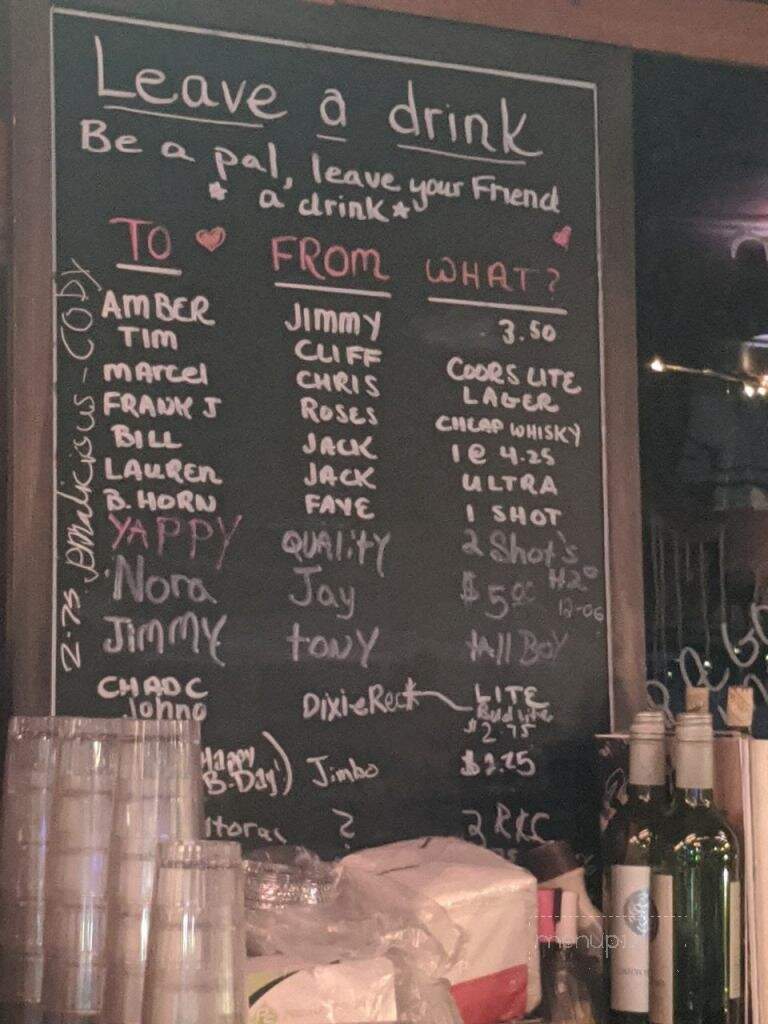 Leave a drink
Be a pal, leave your Friend
* a drink *
TO FROM WHAT?
AMBER JIMMY 3.50
TIM CLIFF COORS LITE
MARCEL CHRIS LAGER
FRANK J ROSES CHEAP WHISKY
BILL JACK 1 @ 4.25
LAUREN JACK ULTRA
B. HORN FAYE 1 SHOT
YAPPY QUALITY 2 Shot's
Nora Jay $5.00 12-06
JIMMY tONY tAll BOY
CHAD C DixieRect LITE
Johno Bud Lite
$2.75
Happy B-Day! ) Jimbo $2.75
?
2.75 malicious - CODY
menupix